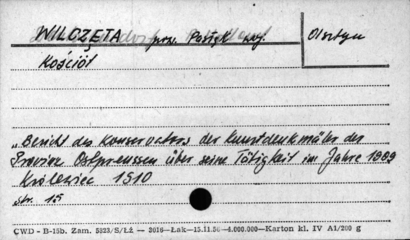 WILCZĘTA pow. Pasłęk woj. Olsztyn
Kościół
"Bericht des Konservators der Kunstdenkmäler der
Provinz Ostpreussen über seine Tätigkeit im Jahre 1909
Królewiec 1910
str. 15
CWD - B-15b. Zam. 5823/S/Łż — 2016—Łak—15.11.56—4.000.000—Karton kl. IV A1/200 g